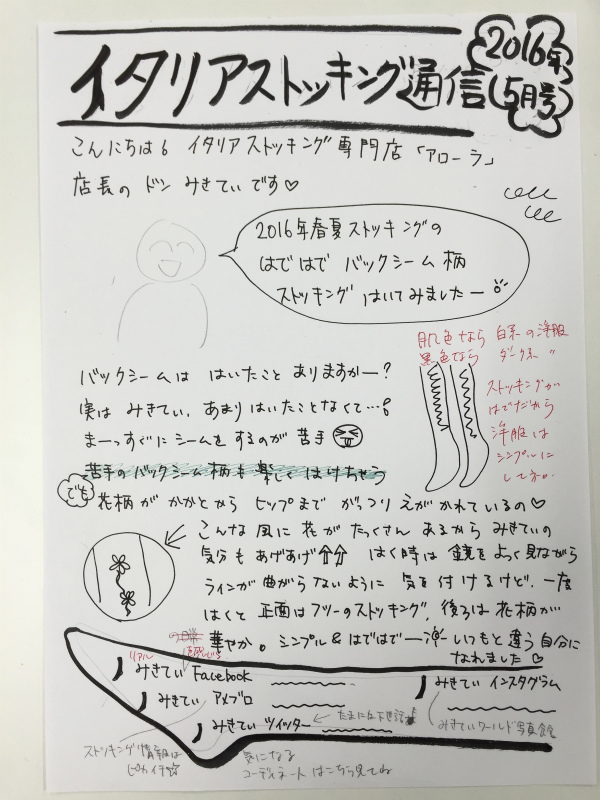 イタリアストッキング通信
2016年
5月号
こんにちは。イタリアストッキング専門店「アローラ」
店長の ドン みきてぃです♡
2016年春夏ストッキングの
はではで バックシーム柄
ストッキング はいてみましたー
肌色なら 白系の洋服
黒色なら ダーク系 〃
ストッキングが
はでだから
洋服は
シンプルに
してネ。
バックシームは はいたこと ありますかー?
実は みきてぃ、あまりはいたことなくて…
まーっすぐにシームをするのが苦手
苦手のバックシーム柄も楽しくはけちゃう
でも 花柄が かかとから ヒップまで がっつりえがかれているの♡
こんな風に花がたっくさん あるから みきてぃの
気分もあげあげ↑↑ はく時は 鏡をよっく見ながら
ラインが曲がらないように 気を付けるけど、一度
はくと 正面はフツーのストッキング、後ろは花柄が
華やか。シンプル&はではでー いつもと違う自分に
なれました♡
リアル
みきてぃ Facebook
みきてぃ インスタグラム
みきてぃ アメブロ
みきてぃ ツイッター ←たまに
みきてぃワールド写真館
ストッキング情報は
ピカイチ☆
気になる
コーディネートはこちら見てね